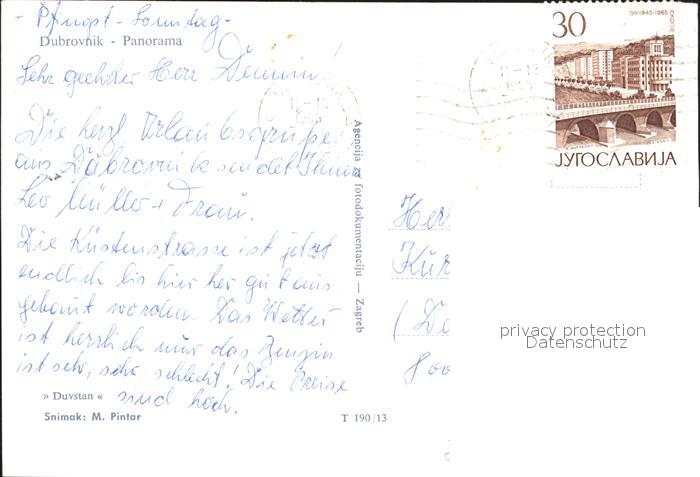 - Pfingst - Sonntag -
Dubrovnik - Panorama
Sehr geehrter Herr
Die herzl Urlaubsgrüße
aus Dubrovnik sendet Ihnen
Leo Müller + Frau.
Die Küstenstrasse ist jetzt
endlich bis hier her gut aus
gebaut worden. Das Wetter
ist herrlich nur das Benzin
ist sehr, sehr schlecht! Die Preise
sind hoch.
» Duvstan «
Snimak: M. Pintar
T 190/13
Agencija za fotodokumentaciju — Zagreb
30
1945-1965
ЈУГОСЛАВИЈА
Her
Kur
(De
800
privacy protection
Datenschutz